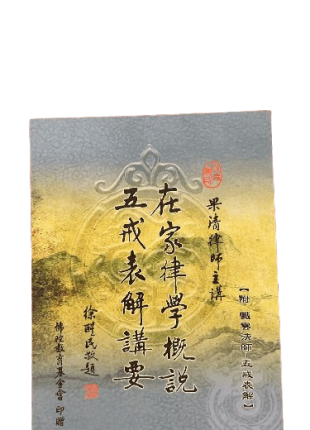 【附 戰寶法師 五戒表解】
果清律師主講
在家律學概說
五戒表解講要
徐醒民敬題
佛陀教育基金會 印贈